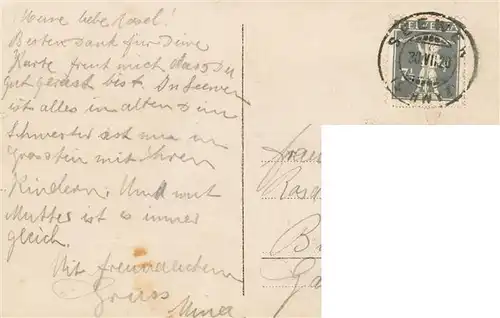 Meine liebe Rosel!
Besten Dank für Deine
Karte freut mich dass Du
gut gereist bist. In Seewen
ist alles in alten
Schwester ist nun in
mit ihren
Kindern. Und mit
Mutter ist immer
gleich.
Mit freundlichem
Gruss
Mina
HELVETIA
30.VII.20
Frau
Rosa
B
Ga